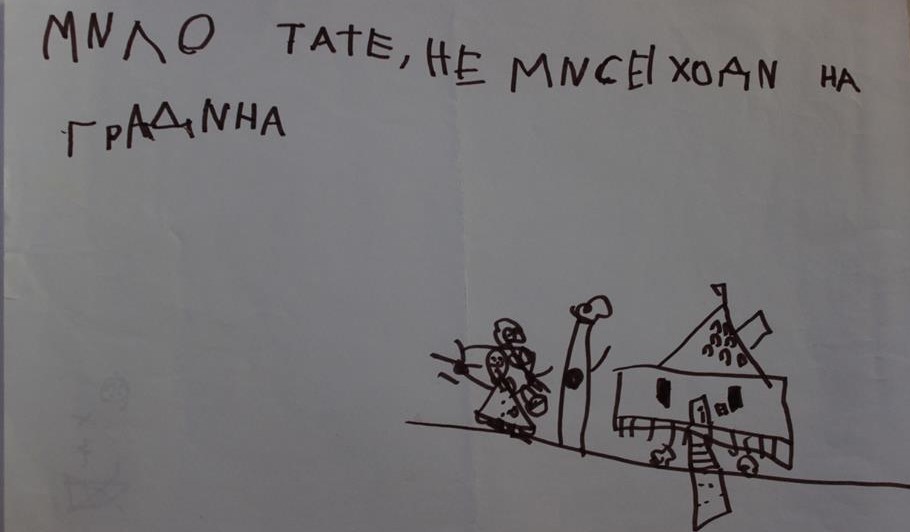 МИЛО ТАТЕ, НЕ МИСЕ|ХОДИ НА
ГРАДИНА